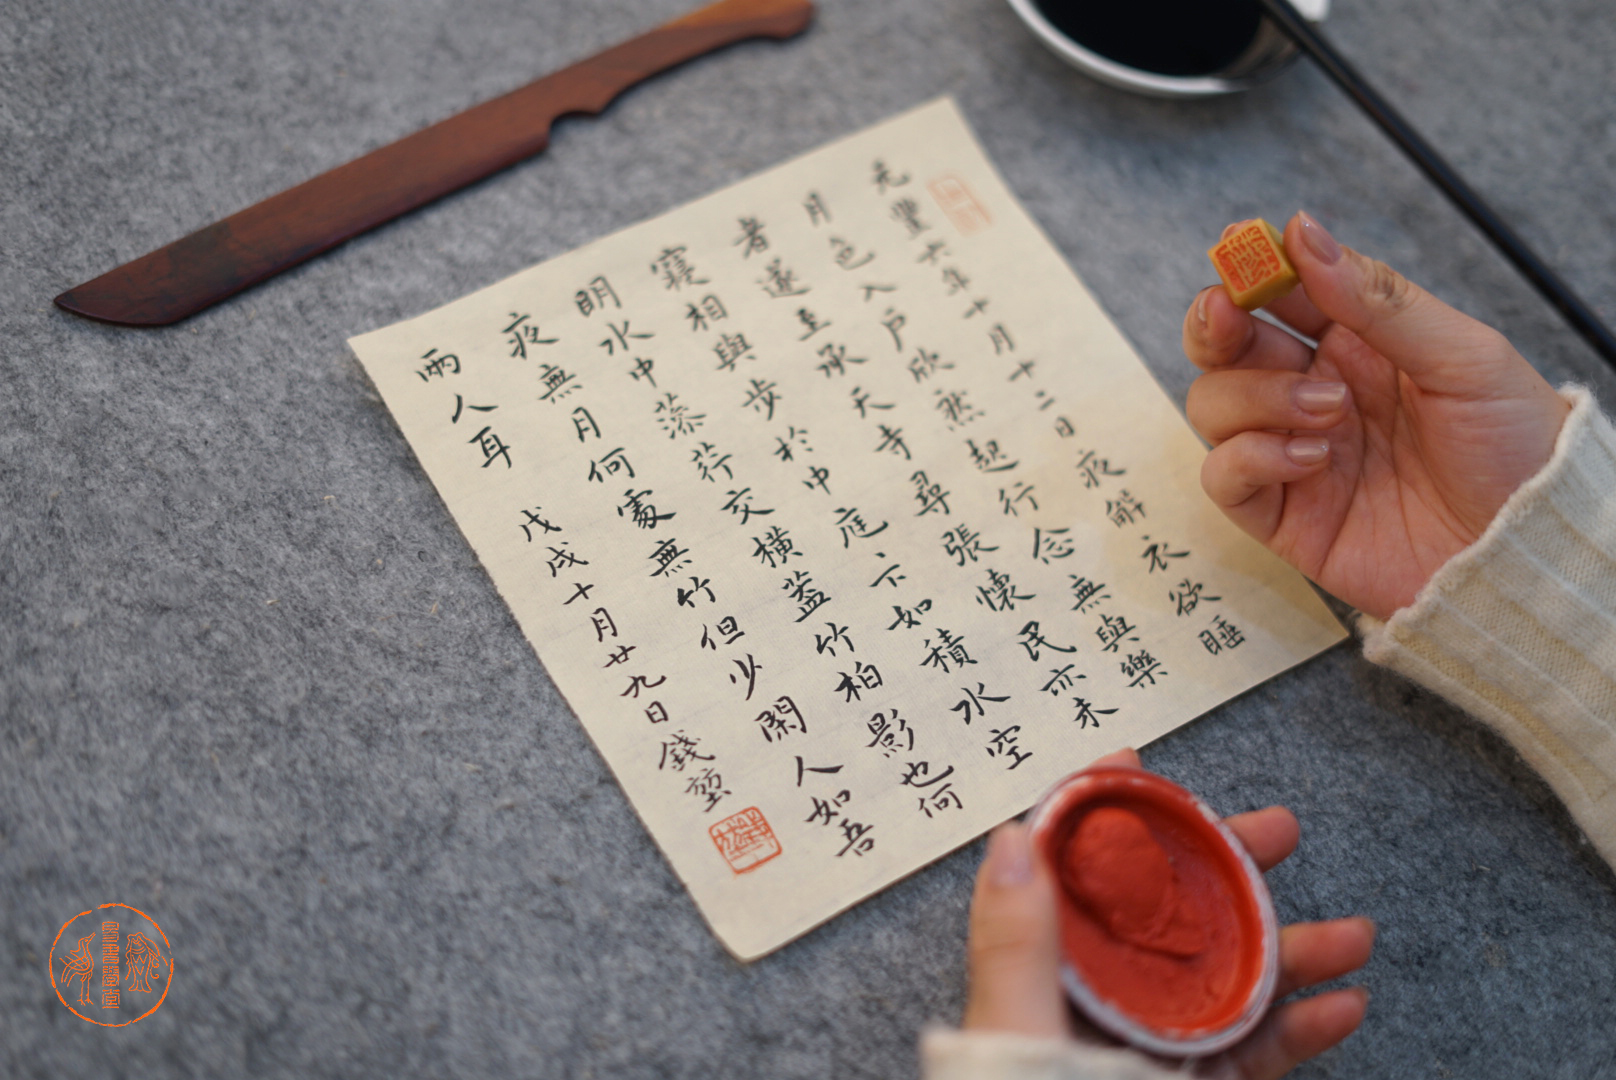 元豐六年十月十二日夜解衣欲睡
月色入戶欣然起行念無與樂
者遂至承天寺尋張懷民亦未
寢相與步於中庭、下如積水空
明水中藻荇交橫蓋竹柏影也何
夜無月何處無竹但少閑人如吾
兩人耳 戊戌十月廿九日錢堃